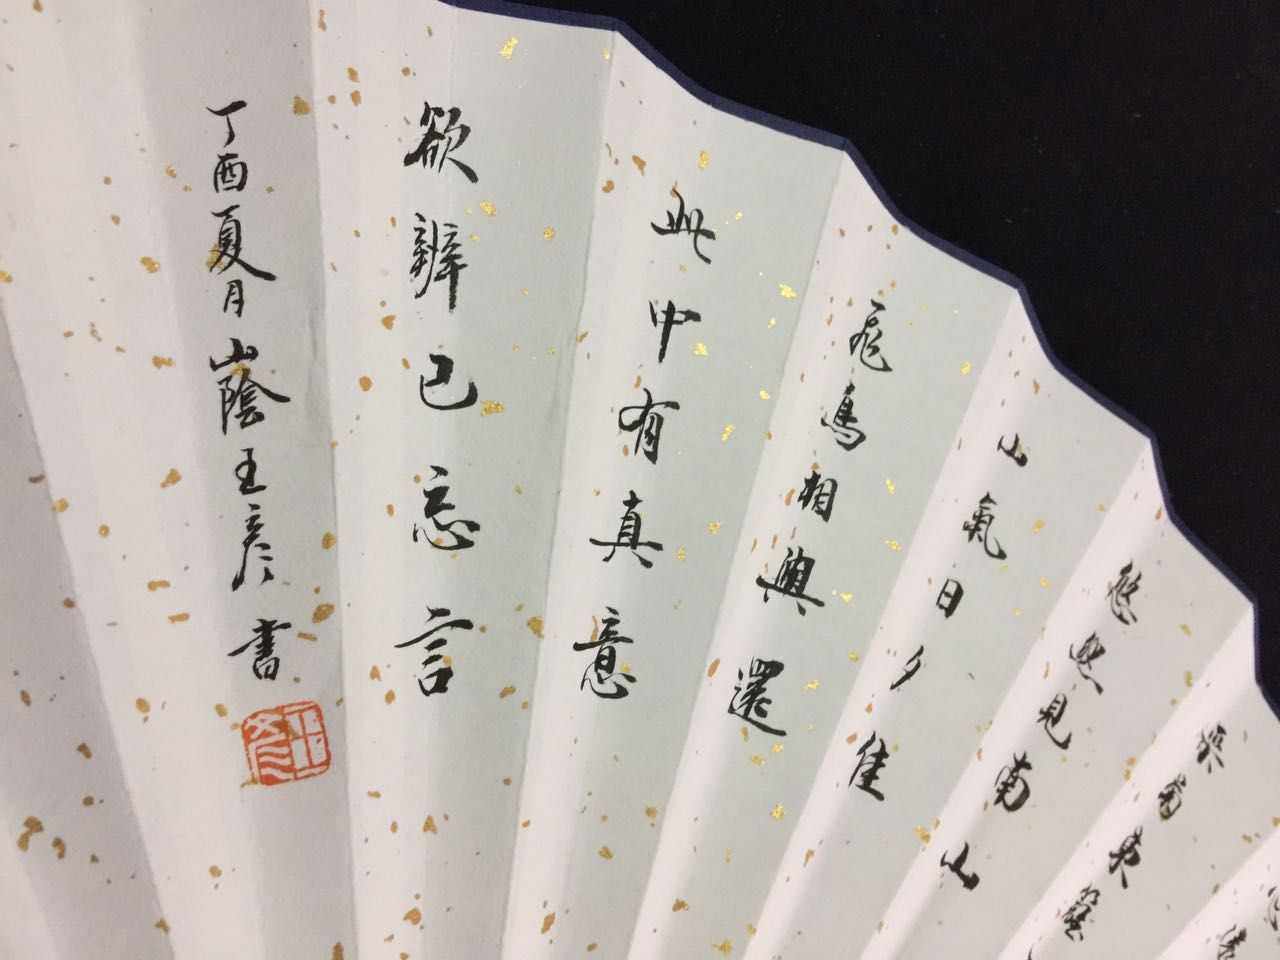 采菊東籬
悠然見南山
山氣日夕佳
飛鳥相與還
此中有真意
欲辨已忘言
丁酉夏月山陰王彦書
王彦